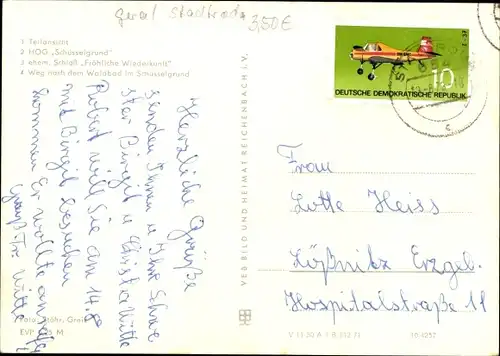 Geral Stadtroda
3,50€
1 Teilansicht
2 HOG „Schüsselgrund"
3 ehem. Schloß „Fröhliche Wiederkunft"
4 Weg nach dem Waldbad im Schüsselgrund
Herzliche Grüße
senden Ihnen u. Ihre Schwe
ster Birgit u. Christa Witte
Robert will Sie am 14.8
mit Birgit besuchen
kommen Er wollte anrufen
Gruß Fr. Witte
Foto: Stöhr,
EVP M
VEB BILD UND HEIMAT REICHENBACH i. V.
10
DEUTSCHE DEMOKRATISCHE REPUBLIK
Frau
Lotte Heiss
Lößnitz Erzgeb.
Hospitalstraße 11